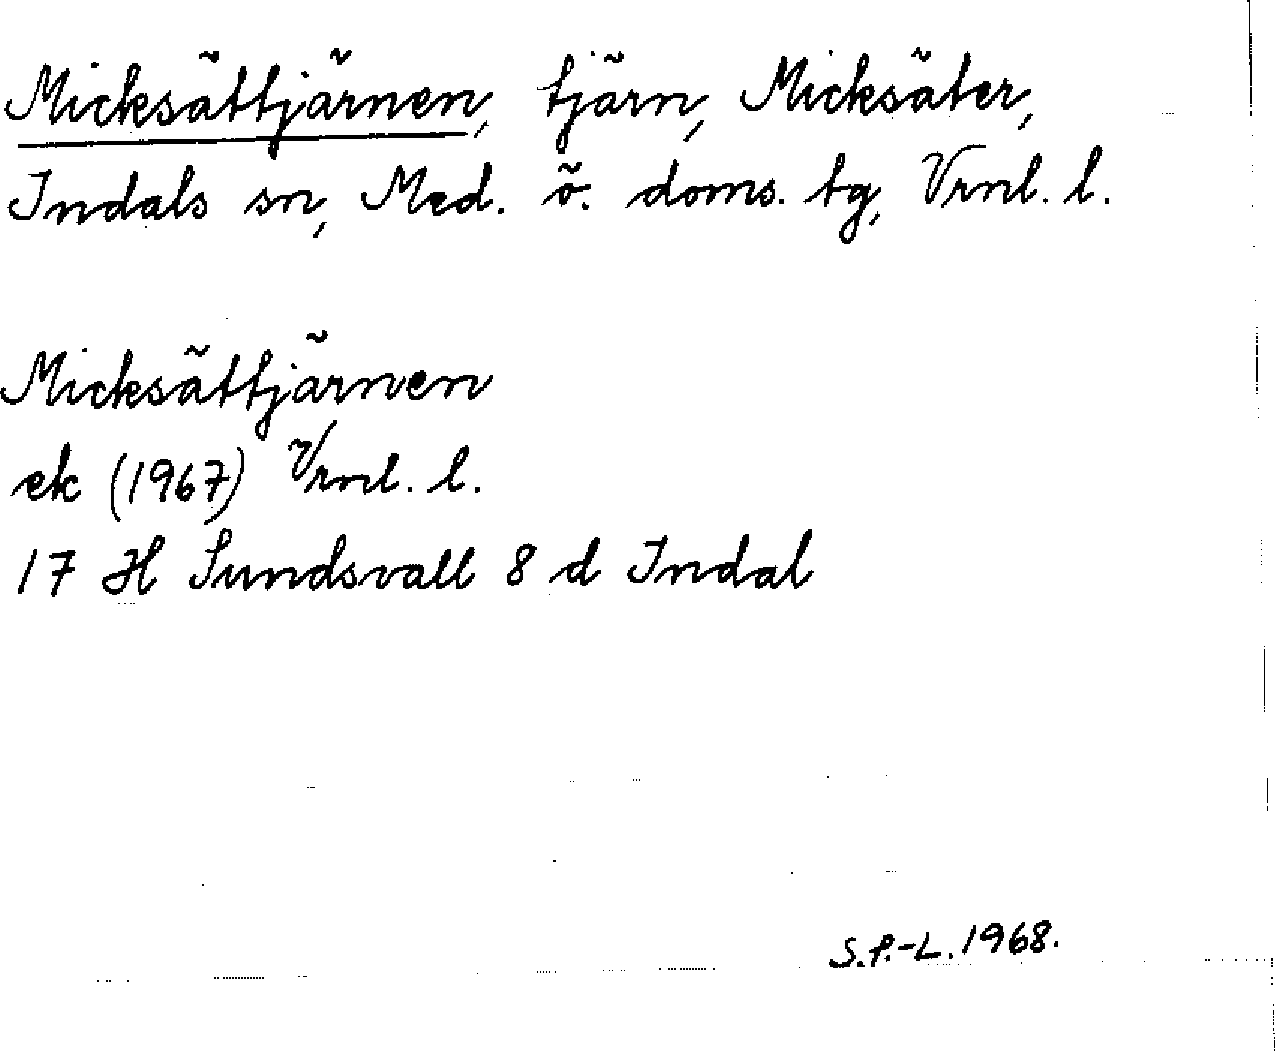 Micksättjärnen, tjärn, Micksäter,
Indals sn, Med. ö. doms. tg, Vrnl. l.
Micksättjärnen
ek (1967) Vrnl. l.
17 H Sundsvall 8 d Indal
S.P.-L. 1968.